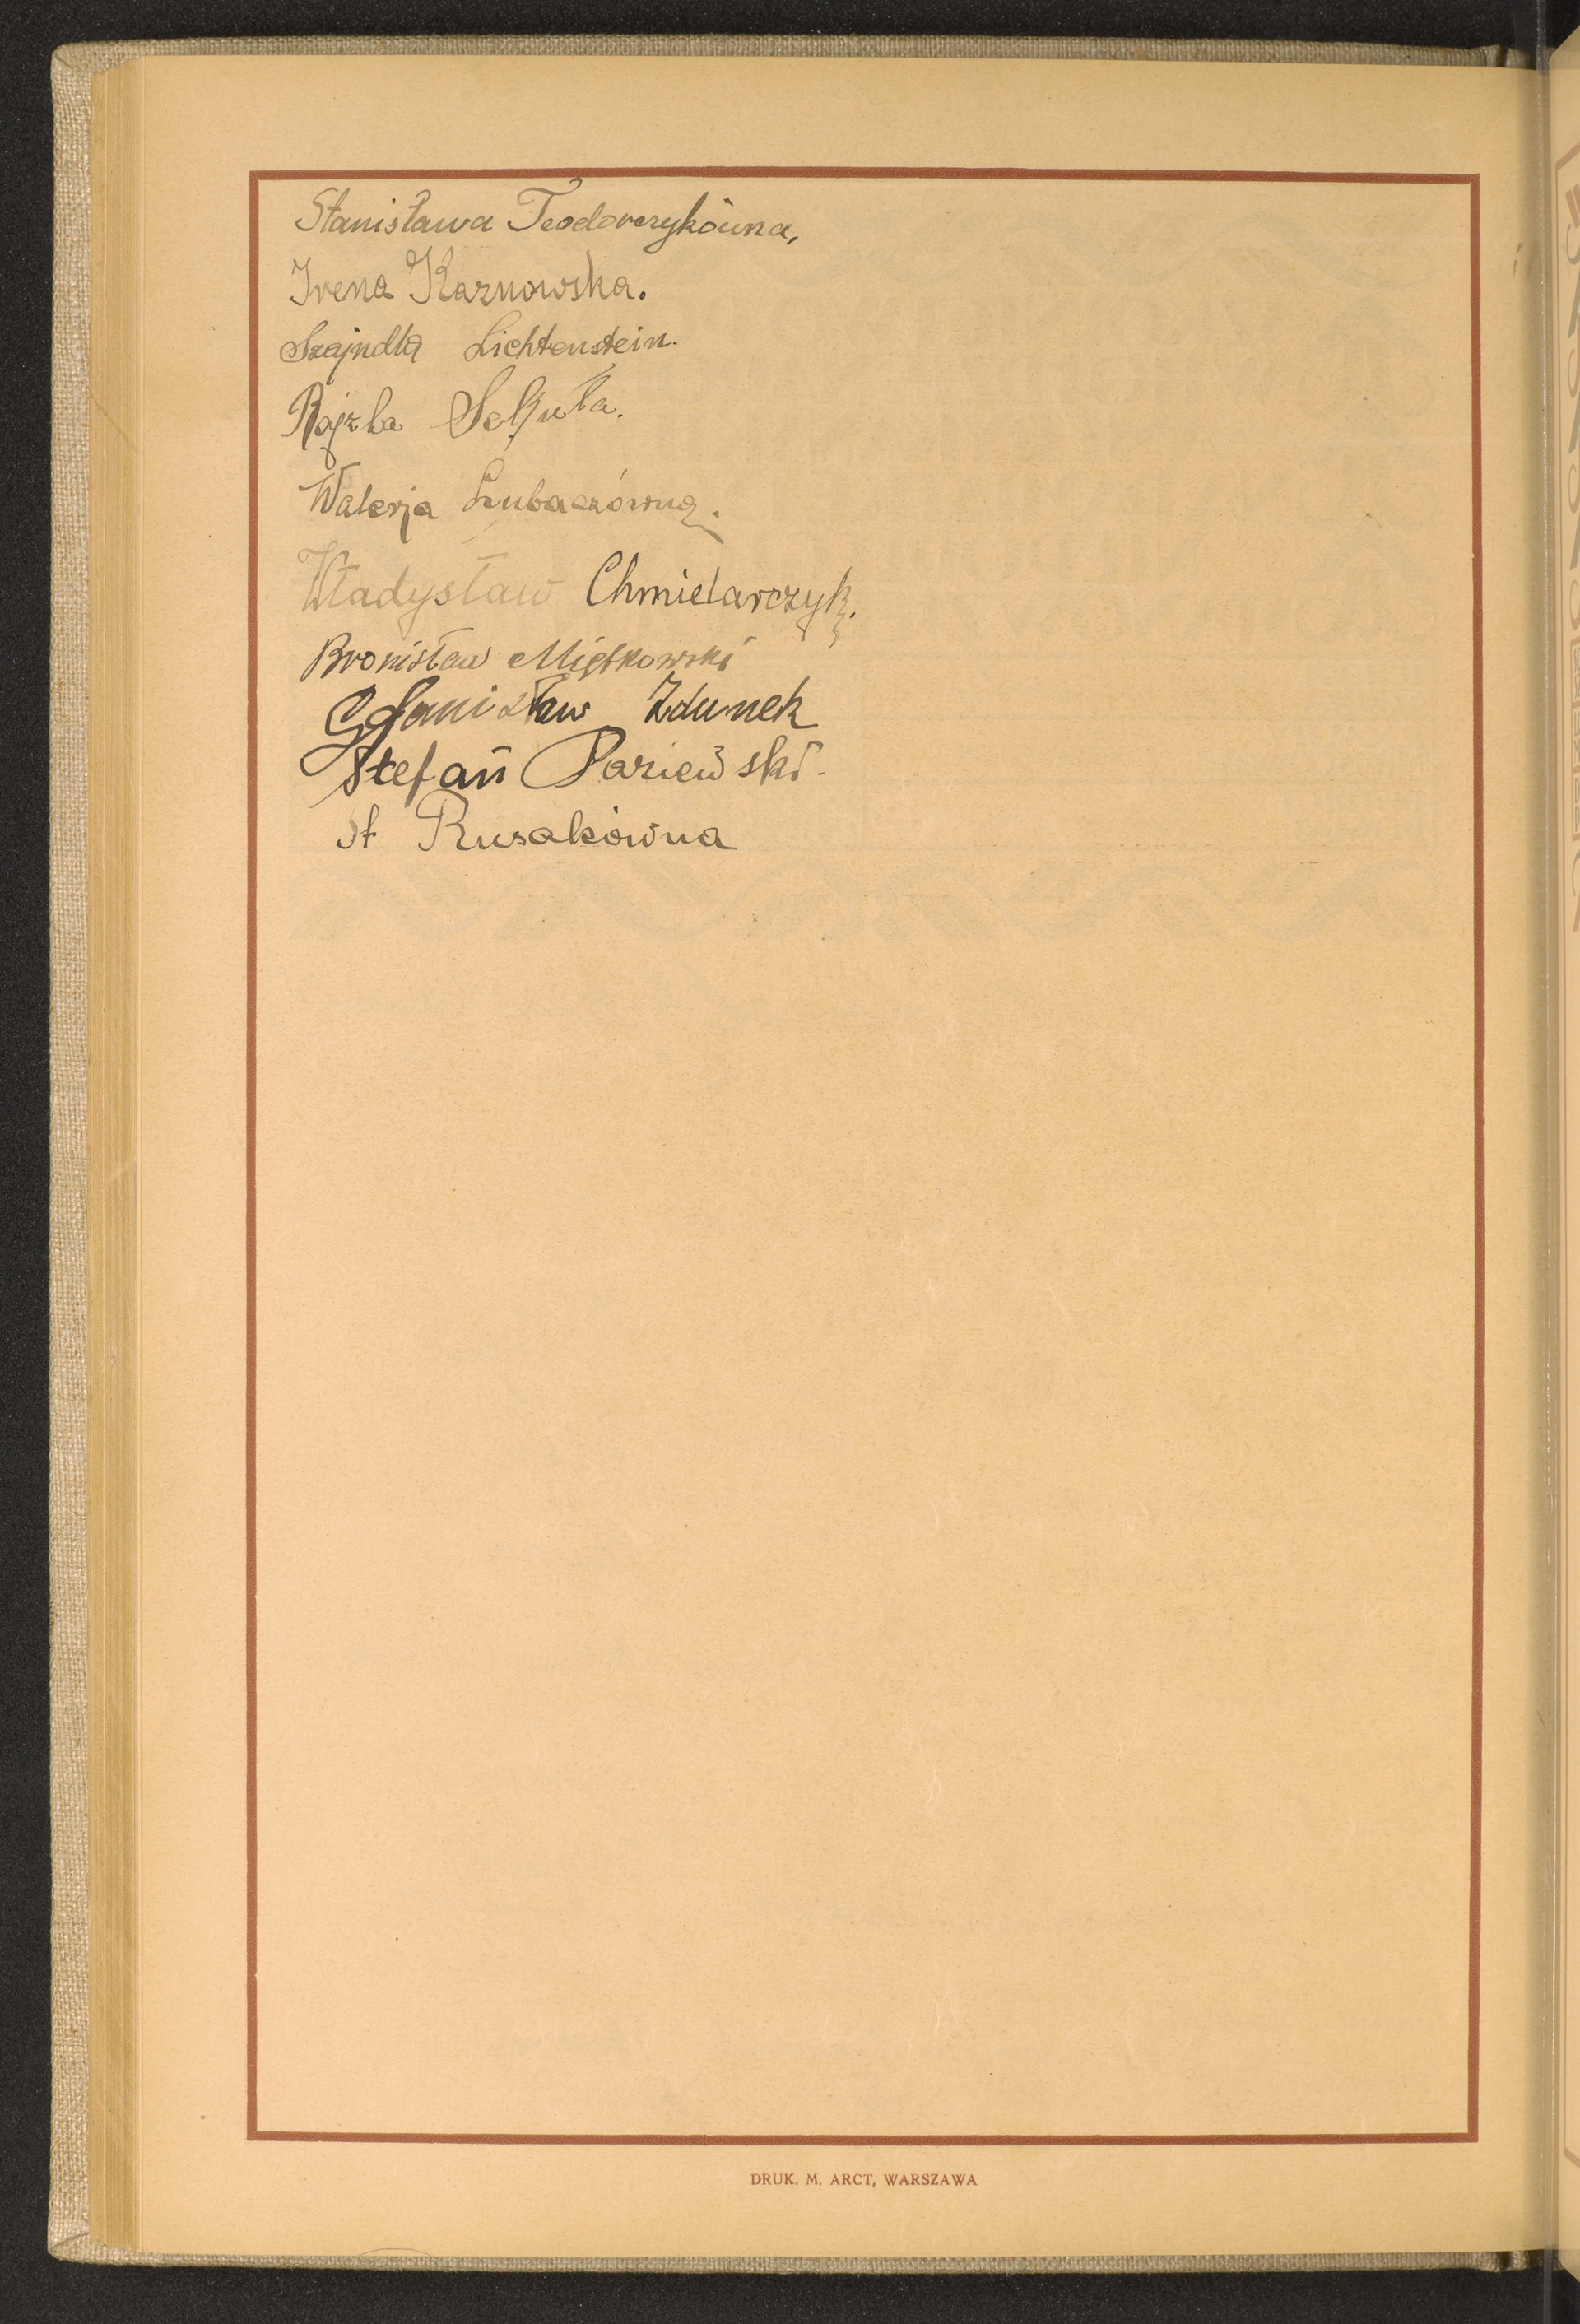 Stanisława Teodorczykówna,
Irena Karnowska.
Szajndla Lichtenstein.
Rajzla Sekuła.
Walerja
Władysław Chmielarczyk.
Bronisław Miętkowski
Stanisław Zdunek
Stefan Pariewski.
St Rusakówna
DRUK. M. ARCT, WARSZAWA